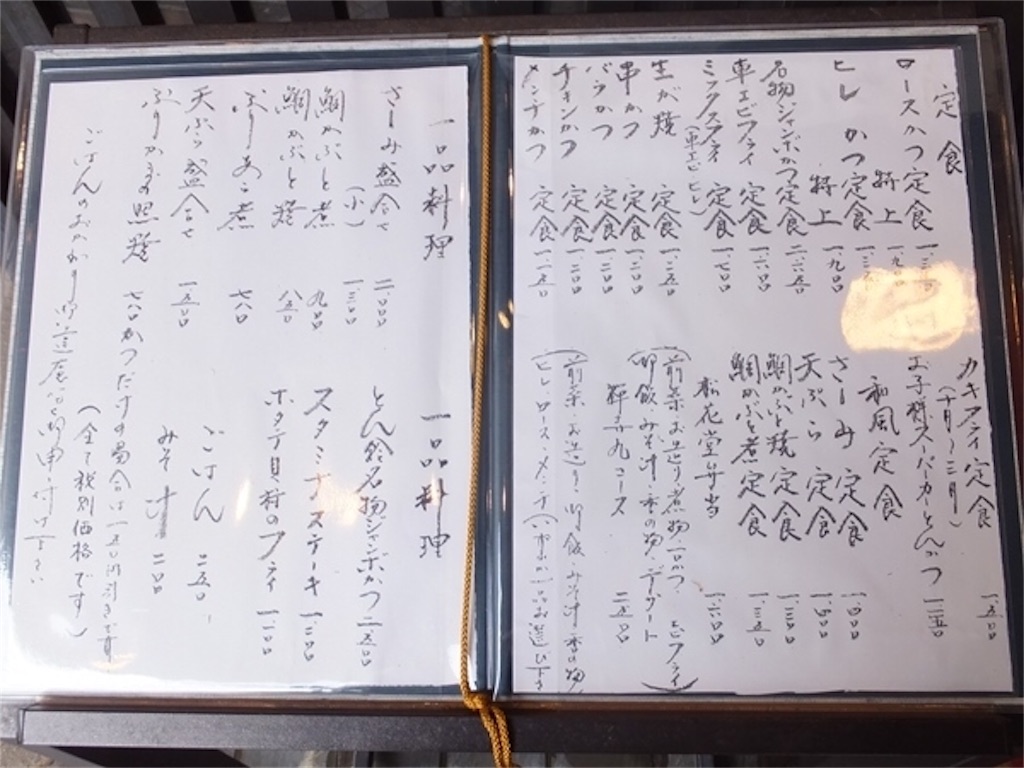 定食
ロースかつ定食
特上 一、九〇〇
ヒレかつ定食 一、三五〇
特上 一、九〇〇
名物ジャンボかつ定食 二、二五〇
車エビフライ定食 一、六〇〇
ミックスフライ定食 一、七〇〇
(車エビ ヒレ)
生が焼定食 一、二五〇
串かつ定食 一、二〇〇
バラかつ定食 一、二〇〇
チキンかつ定食 一、二〇〇
メンチかつ定食 一、一五〇
カキフライ定食 一、五〇〇
(十月〜三月)
お子様スーパーカーとんかつ 一、二五〇
和風定食
さしみ定食 一、四〇〇
天ぷら定食 一、四〇〇
鯛かぶと焼定食 一、三〇〇
鯛かぶと煮定食 一、三五〇
松花堂弁当 一、六〇〇
(前菜・お造り・煮物・一口かつ・エビフライ
御飯・みそ汁・季の物・デザート)
コース 二、五〇〇
(前菜・お造り・御飯・みそ汁・季の物
ヒレ・ロース・メンチ 一品お選び下さい
一品料理
さしみ盛合せ 二、〇〇〇
(小) 一、三〇〇
鯛かぶと煮 九〇〇
鯛かぶと焼 八五〇
ぶりあら煮 七八〇
天ぷら盛合せ 一、五〇〇
ぶりかまの照焼 七八〇
一品料理
とん鈴名物ジャンボかつ 二、一五〇
スタミナステーキ 一、三〇〇
ホタテ貝柱のフライ 一、一〇〇
ごはん 二五〇
みそ汁 二〇〇
かつだけの場合は一五〇円引きです
(全て税別価格です)
ごはんのおかわり御遠慮なく御申し付け下さい